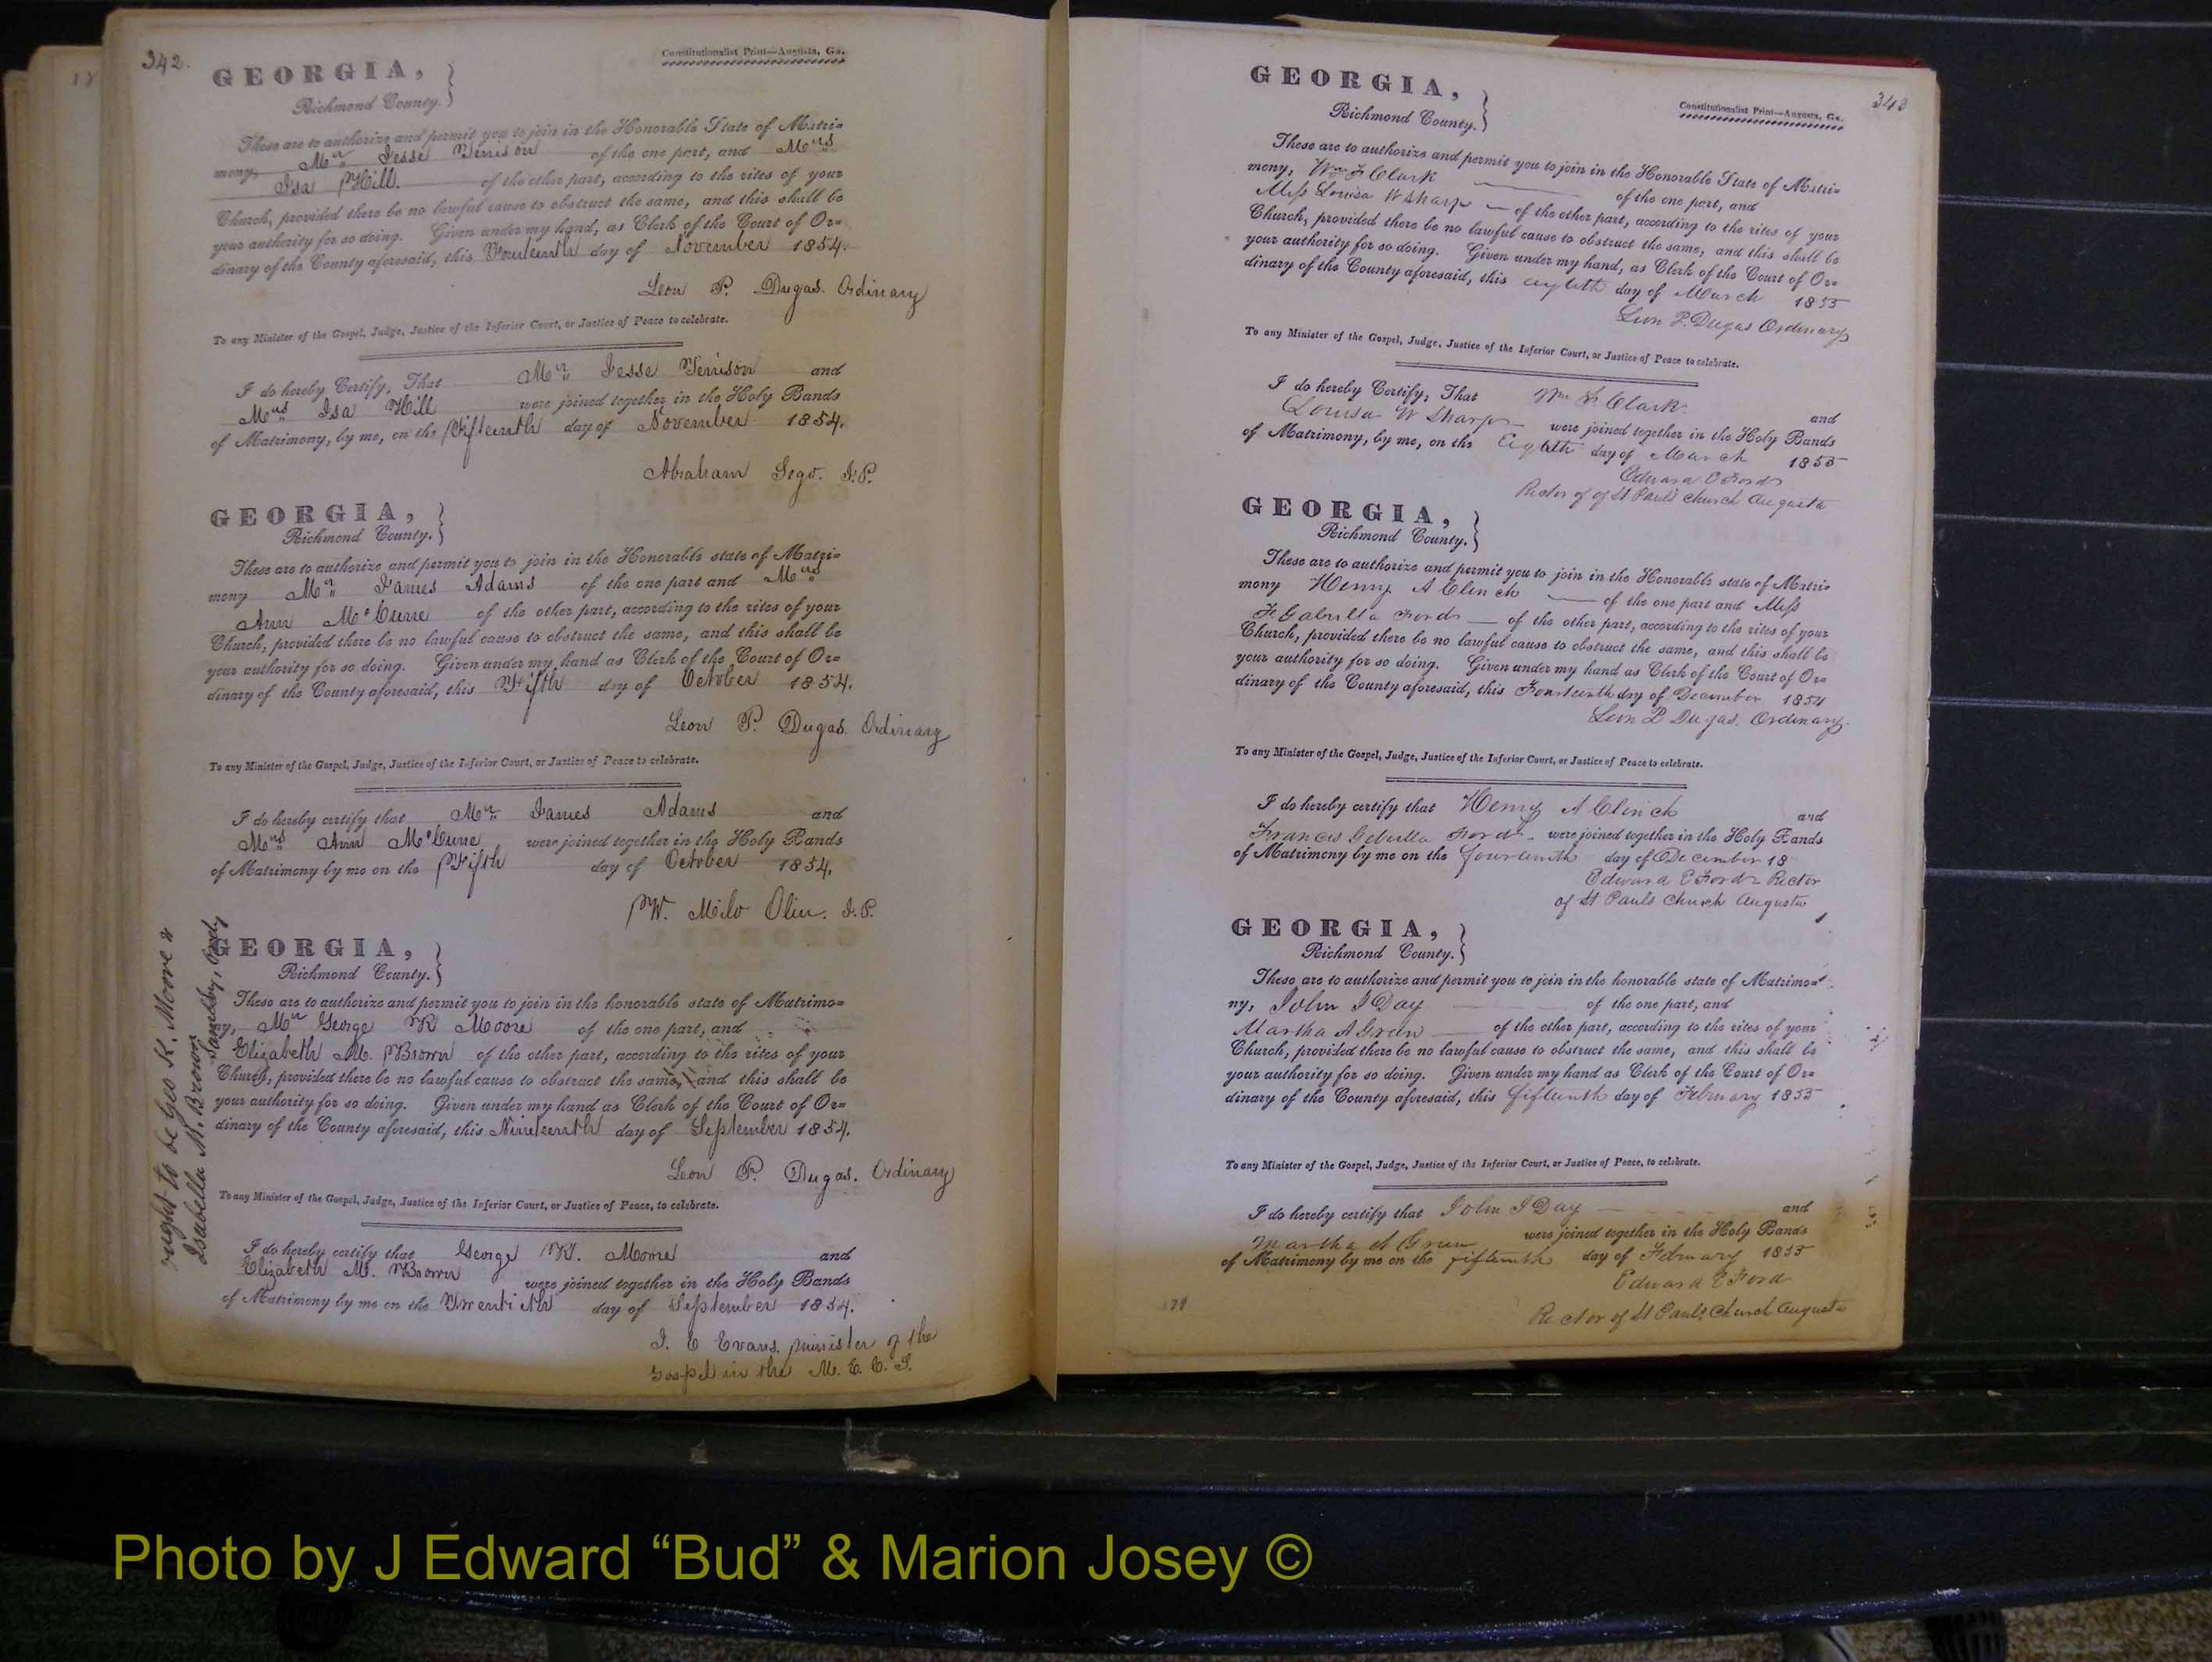 342.
Constitutionalist Print—Augusta, Ga.
GEORGIA,
Richmond County.
These are to authorize and permit you to join in the Honorable State of Matri=
mony, Mr. Jesse Venison of the one part, and Mrs
Isa Hill. of the other part, according to the rites of your
Church, provided there be no lawful cause to obstruct the same, and this shall be
your authority for so doing. Given under my hand, as Clerk of the Court of Or=
dinary of the County aforesaid, this Fourteenth day of November 1854.
Leon P. Dugas. Ordinary
To any Minister of the Gospel, Judge, Justice of the Inferior Court, or Justice of Peace to celebrate.
I do hereby Certify, That Mr. Jesse Venison and
Mrs Isa Hill were joined together in the Holy Bands
of Matrimony, by me, on the Fifteenth day of November 1854.
Abraham Sego. J.P.
GEORGIA,
Richmond County.
These are to authorize and permit you to join in the Honorable state of Matri=
mony Mr. James Adams of the one part and Mrs
Ann McCune of the other part, according to the rites of your
Church, provided there be no lawful cause to obstruct the same, and this shall be
your authority for so doing. Given under my hand as Clerk of the Court of Or=
dinary of the County aforesaid, this Fifth day of October 1854.
Leon P. Dugas. Ordinary
To any Minister of the Gospel, Judge, Justice of the Inferior Court, or Justice of Peace to celebrate.
I do hereby certify that Mr. James Adams and
Mrs Ann McCune were joined together in the Holy Bands
of Matrimony by me on the Fifth day of October 1854.
W. Milo Olin. J.P.
GEORGIA,
Richmond County.
These are to authorize and permit you to join in the honorable state of Matrimo=
ny, Mr George K Moore of the one part, and
Elizabeth M. Brown of the other part, according to the rites of your
Church, provided there be no lawful cause to obstruct the same, and this shall be
your authority for so doing. Given under my hand as Clerk of the Court of Or=
dinary of the County aforesaid, this Nineteenth day of September 1854.
Leon P. Dugas. Ordinary
To any Minister of the Gospel, Judge, Justice of the Inferior Court, or Justice of Peace, to celebrate.
I do hereby certify that George K. Moore and
Elizabeth M. Brown were joined together in the Holy Bands
of Matrimony by me on the Twentieth day of September 1854.
J. E Evans. minister of the
Gospel in the M. E. C. S.
ought to be Geo K. Moore &
Isabella M. Brown
343
Constitutionalist Print—Augusta, Ga.
GEORGIA,
Richmond County.
These are to authorize and permit you to join in the Honorable State of Matri=
mony, Wm F Clark of the one part, and
Miss Louisa W Sharp of the other part, according to the rites of your
Church, provided there be no lawful cause to obstruct the same, and this shall be
your authority for so doing. Given under my hand, as Clerk of the Court of Or=
dinary of the County aforesaid, this eighth day of March 1855
Leon P. Dugas Ordinary
To any Minister of the Gospel, Judge, Justice of the Inferior Court, or Justice of Peace to celebrate.
I do hereby Certify, That Wm F Clark. and
Louisa W Sharp were joined together in the Holy Bands
of Matrimony, by me, on the Eighth day of March 1855
Edward E Ford
Rector of of St Pauls church Augusta
GEORGIA,
Richmond County.
These are to authorize and permit you to join in the Honorable state of Matri=
mony Henry A Clinch of the one part and Miss
F. Gabrilla Ford of the other part, according to the rites of your
Church, provided there be no lawful cause to obstruct the same, and this shall be
your authority for so doing. Given under my hand as Clerk of the Court of Or=
dinary of the County aforesaid, this Fourteenth day of December 1854
Leon P Dugas. Ordinary.
To any Minister of the Gospel, Judge, Justice of the Inferior Court, or Justice of Peace to celebrate.
I do hereby certify that Henry A Clinch and
Francis Gebrilla Ford were joined together in the Holy Bands
of Matrimony by me on the fourteenth day of December 18
Edward E Ford Rector
of St Pauls Church Augusta
GEORGIA,
Richmond County.
These are to authorize and permit you to join in the honorable state of Matrimo=
ny, John J Day of the one part, and
Martha A Green of the other part, according to the rites of your
Church, provided there be no lawful cause to obstruct the same, and this shall be
your authority for so doing. Given under my hand as Clerk of the Court of Or=
dinary of the County aforesaid, this fifteenth day of February 1855
To any Minister of the Gospel, Judge, Justice of the Inferior Court, or Justice of Peace, to celebrate.
I do hereby certify that John J Day and
Martha A Green were joined together in the Holy Bands
of Matrimony by me on the fifteenth day of February 1855
Edward E Ford
Rector of St Pauls Church Augusta
Photo by J Edward “Bud” & Marion Josey ©